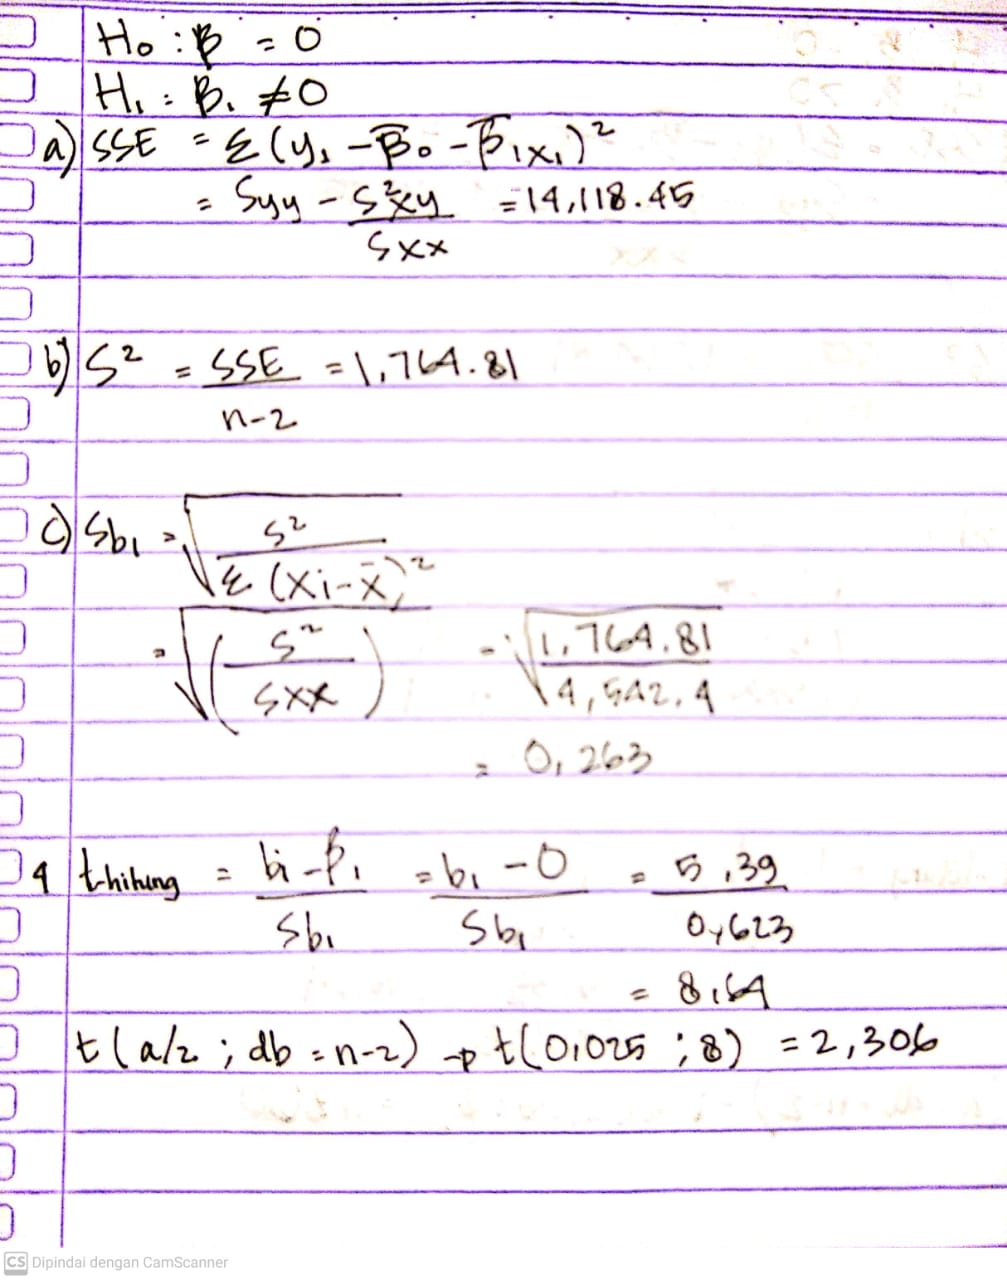 Ho : β = 0
H₁ : β₁ ≠ 0
a) SSE = Σ (y₁ - β̄₀ - β̄₁x₁)²
= Syy - S²xy / Sxx = 14,118.45
b) S² = SSE / n-2 = 1,764.81
c) Sb₁ = √(S² / Σ (xi - x̄)²)
= √(S² / Sxx) = √(1,764.81 / 4,542,4
= 0,263
4 t-hitung = bi - β₁ / Sb₁ = b₁ - 0 / Sb₁ = 5,39 / 0,623
= 8,64
t (a/2 ; db = n-2) → t(0,025 ; 8) = 2,306
CS Dipindai dengan CamScanner